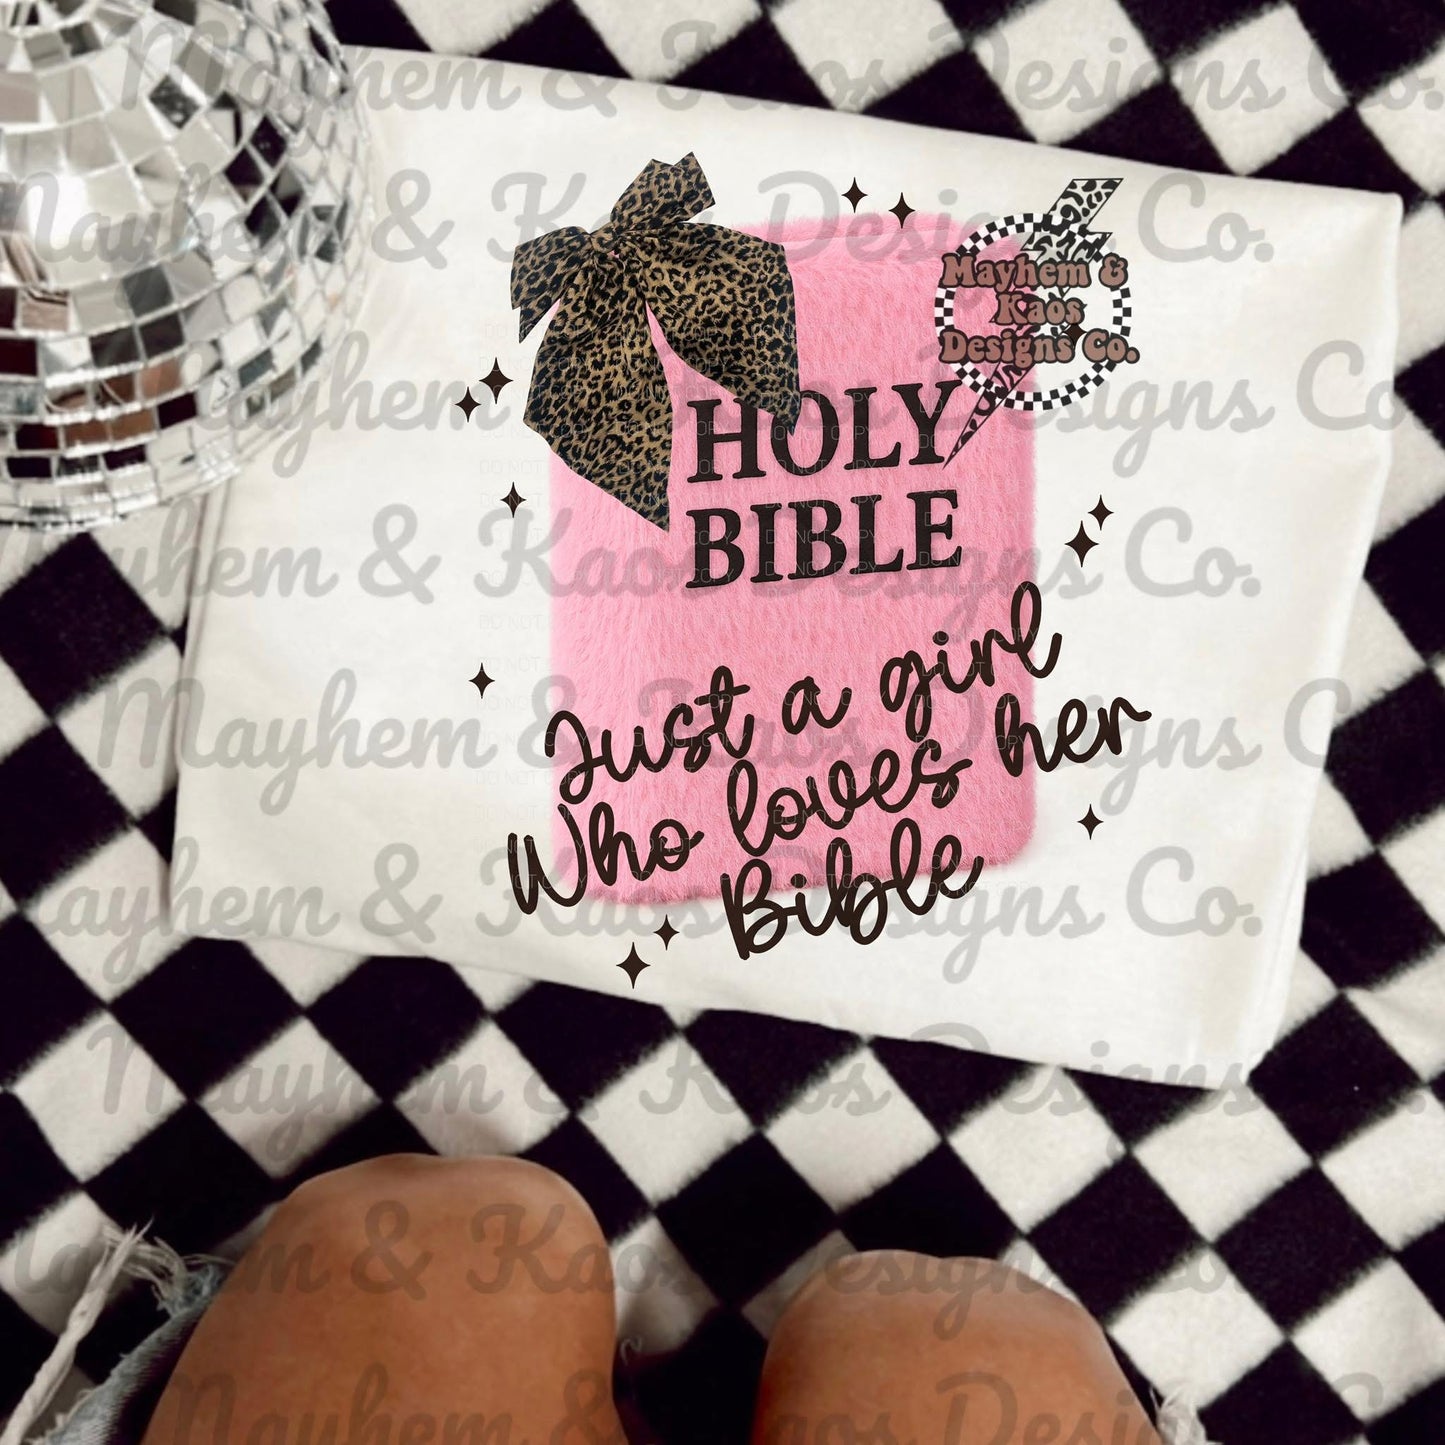 Mayhem & Kaos Designs Co.
Mayhem & Kaos Designs Co.
Mayhem &
Kaos
Designs Co.
Mayhem & Kaos Designs Co.
HOLY
BIBLE
DO NOT COPY
Mayhem & Kaos Designs Co.
Just a girl
Who loves her
Bible
Mayhem & Kaos Designs Co.
Mayhem & Kaos Designs Co.
Mayhem & Kaos Designs Co.
Mayhem & Kaos Designs Co.
Mayhem & Kaos Designs Co.